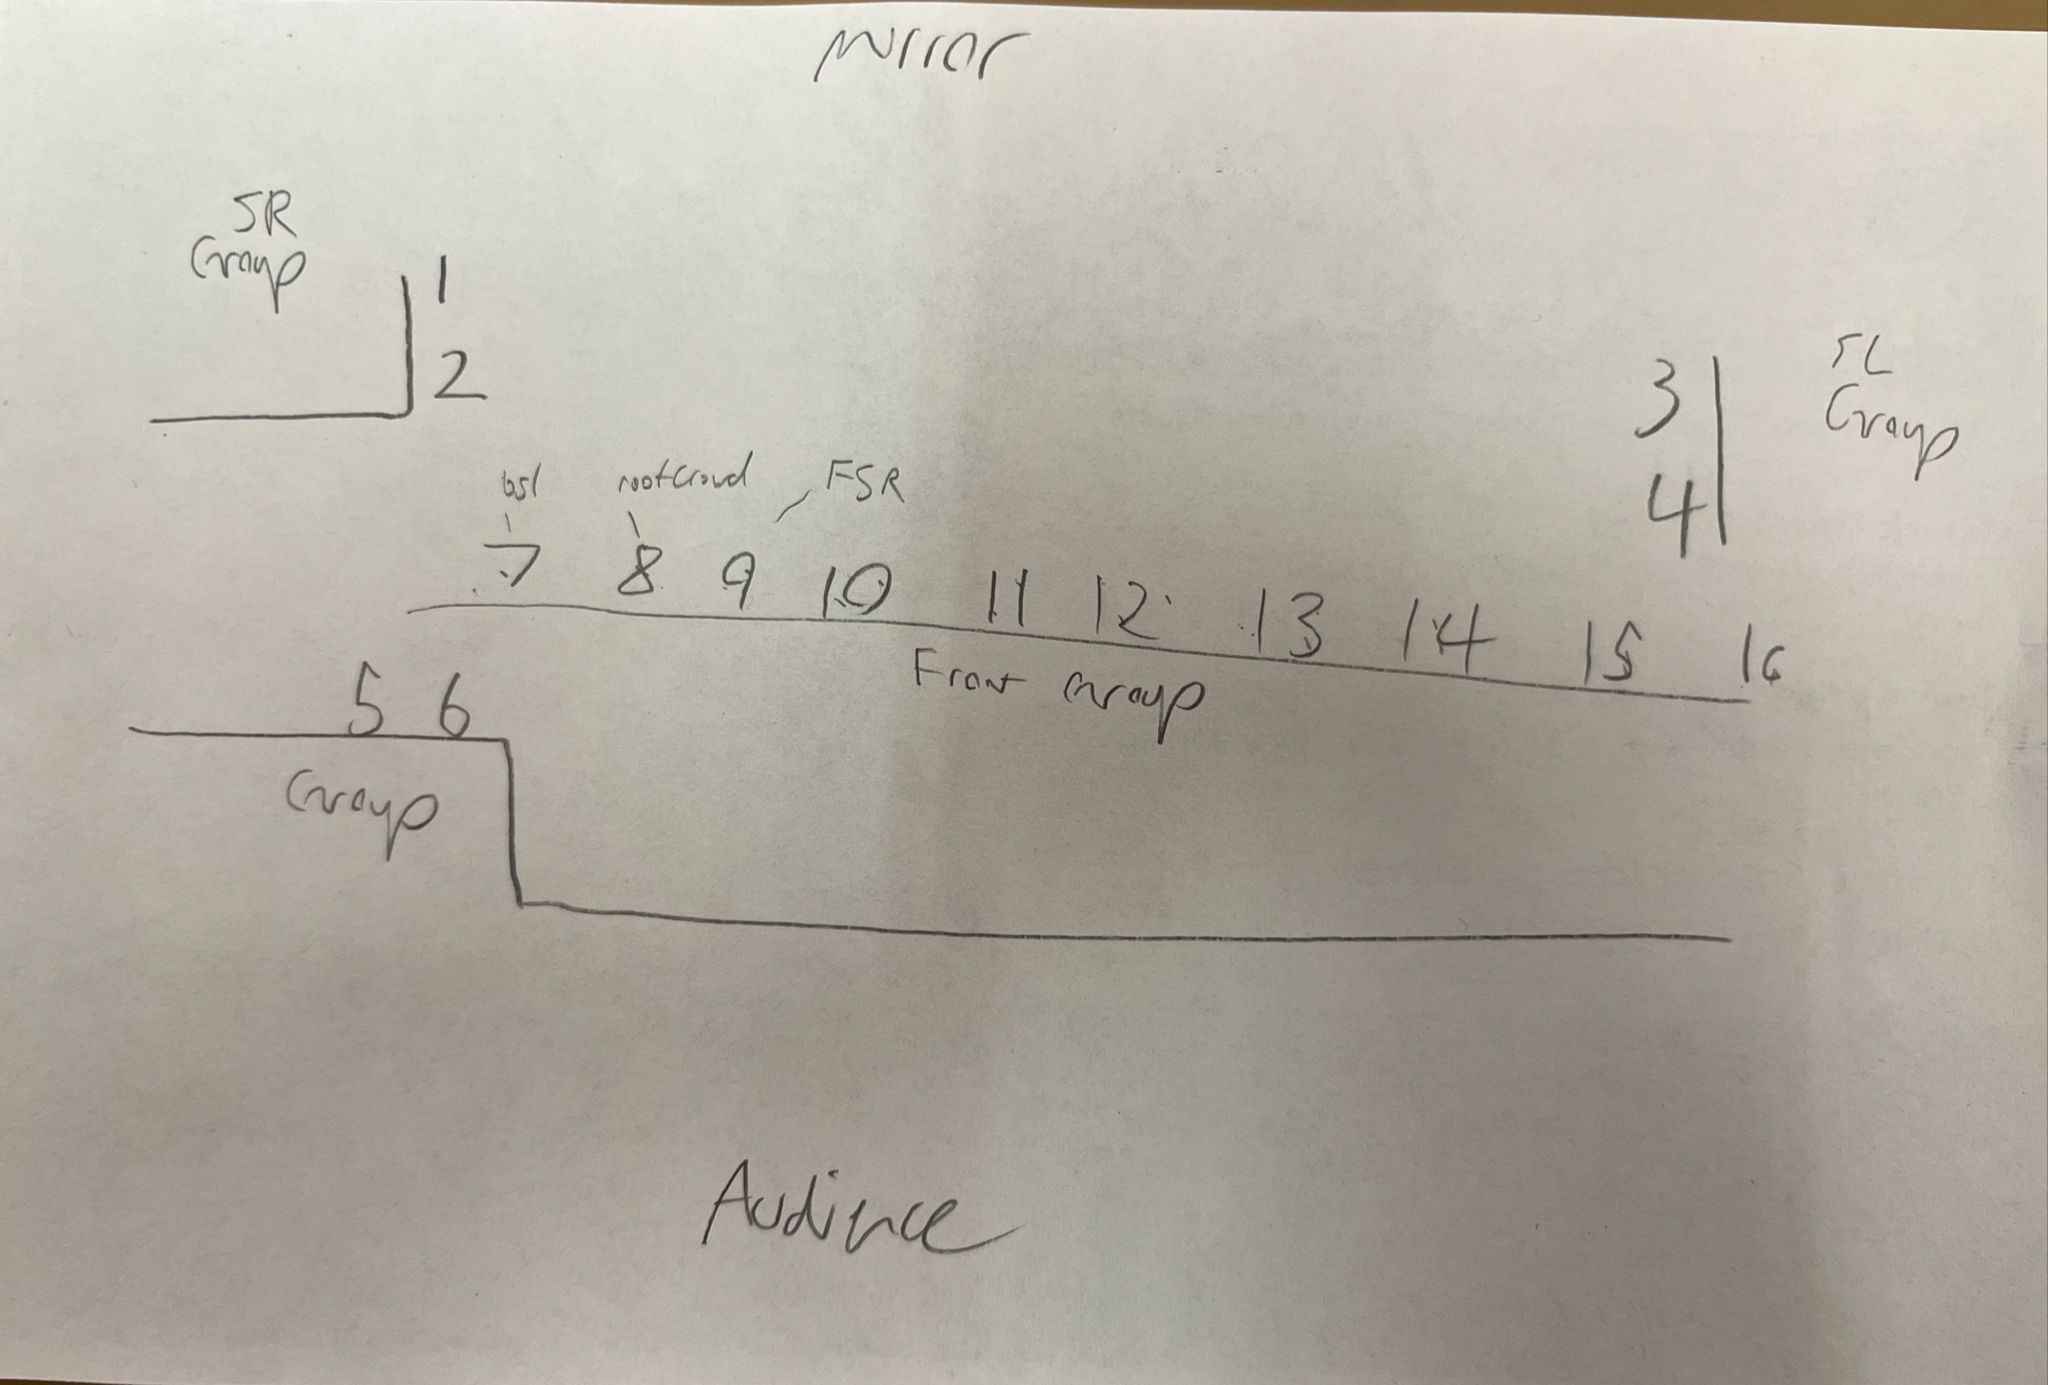 Mirror
SR
Group
1
2
SL
Group
3
4
bsl rootcrowd FSR
7 8 9 10 11 12 13 14 15 16
Front Group
5 6
Group
Audience